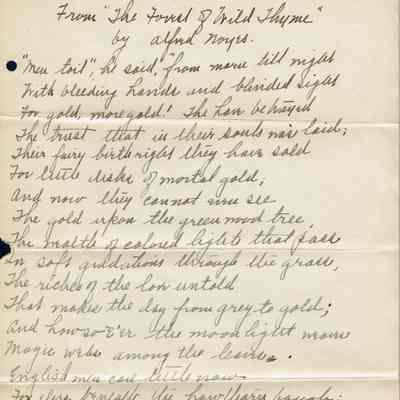 From "The Forest of Wild Thyme"
by Alfred Noyes.
"Men toil", he said, "from morn till night
With bleeding hands and blinded sight
For gold, more gold! They have betrayed
The trust that in their souls was laid;
Their fairy birthright they have sold
For little disks of mortal gold;
And now they cannot even see
The gold upon the greenwood tree,
The wealth of colored lights that pass
In soft gradations through the grass,
The riches of the love untold
That makes the day from grey to gold;
And howso'e'er the moonlight weave
Magic webs among the leaves.
English men care little now
For elves beneath the hawthorn bough: